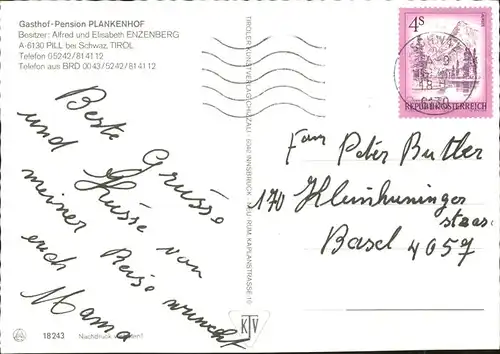 Gasthof-Pension PLANKENHOF
Besitzer: Alfred und Elisabeth ENZENBERG
A-6130 PILL bei Schwaz, TIROL
Telefon 05242/81 41 12
Telefon aus BRD 0043/5242/81 41 12
Beste Grüsse
und Küsse von
meiner Reise wünscht
euch
Mama
18243
Nachdruck verboten!
TIROLER KUNSTVERLAG CHIZZALI
6040 INNSBRUCK - NEU RUM, KAPLANSTRASSE 10
KTV
4S
REPUBLIK ÖSTERREICH
6130
Fam Peter Butler
170 Kleinhuninger
stras.
Basel 4057